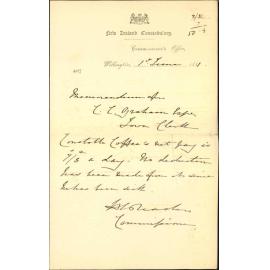 New Zealand Constabulary,
Commissioner's Office,
Wellington, 1st June 188
Memorandum for
C. C. Graham Esqre
Town Clerk
Constable Coffee's net pay is
7/3 a day. No deduction
has been made from
he has been sick.
Commissioner